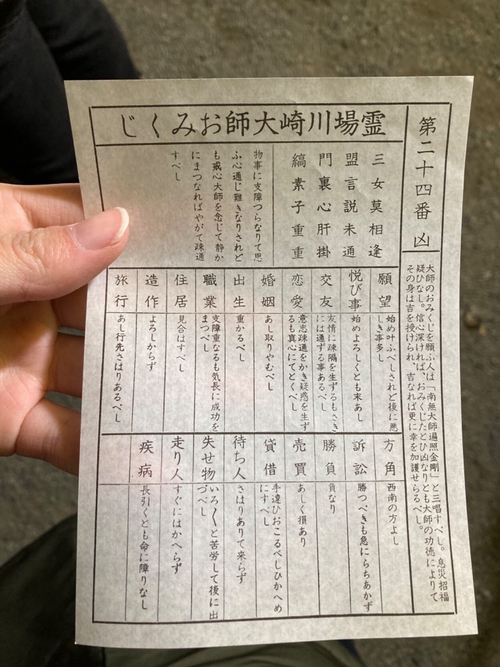 霊場川崎大師おみくじ
第二十四番 凶
大師のおみくじを願ふ人は「南無大師遍照金剛」と三唱すべし。息災招福
疑ひなし。信心深ければ、おみくじたとひ凶なりとも大師の功徳によりて
その身は吉を授けられ、吉なれば更に幸を加護せらるべし。
三女莫相逢
盟言説未通
門裏心肝掛
縞素子重重
物事に支障つらなりて思
ふ心通じ難きなりされど
も戒心大師を念じて静か
にまつなればやがて疎通
すべし
願望 始め叶ふべしされど後に悪
しき事多し
悦び事 始めよろしくとも末あし
交友 友情に疎隔を生ずるもさき
には通ずる事あるべし
恋愛 意志疎通をかき疑惑を生ず
るも真心にてとくべし
婚姻 あし取りやむべし
出生 重かるべし
職業 支障重なるも気長に成功を
まつべし
住居 見合はすべし
造作 よろしからず
旅行 あし行先さはりあるべし
方角 西南の方よし
訴訟 勝つべきも急にらちあかず
勝負 負なり
売買 あしく損あり
貸借 手違ひおこるべしひかへめ
にすべし
待ち人 さはりありて来らず
失せ物 いろ〳〵と苦労して後に出
づべし
走り人 すぐにはかへらず
疾病 長引くとも命に障りなし